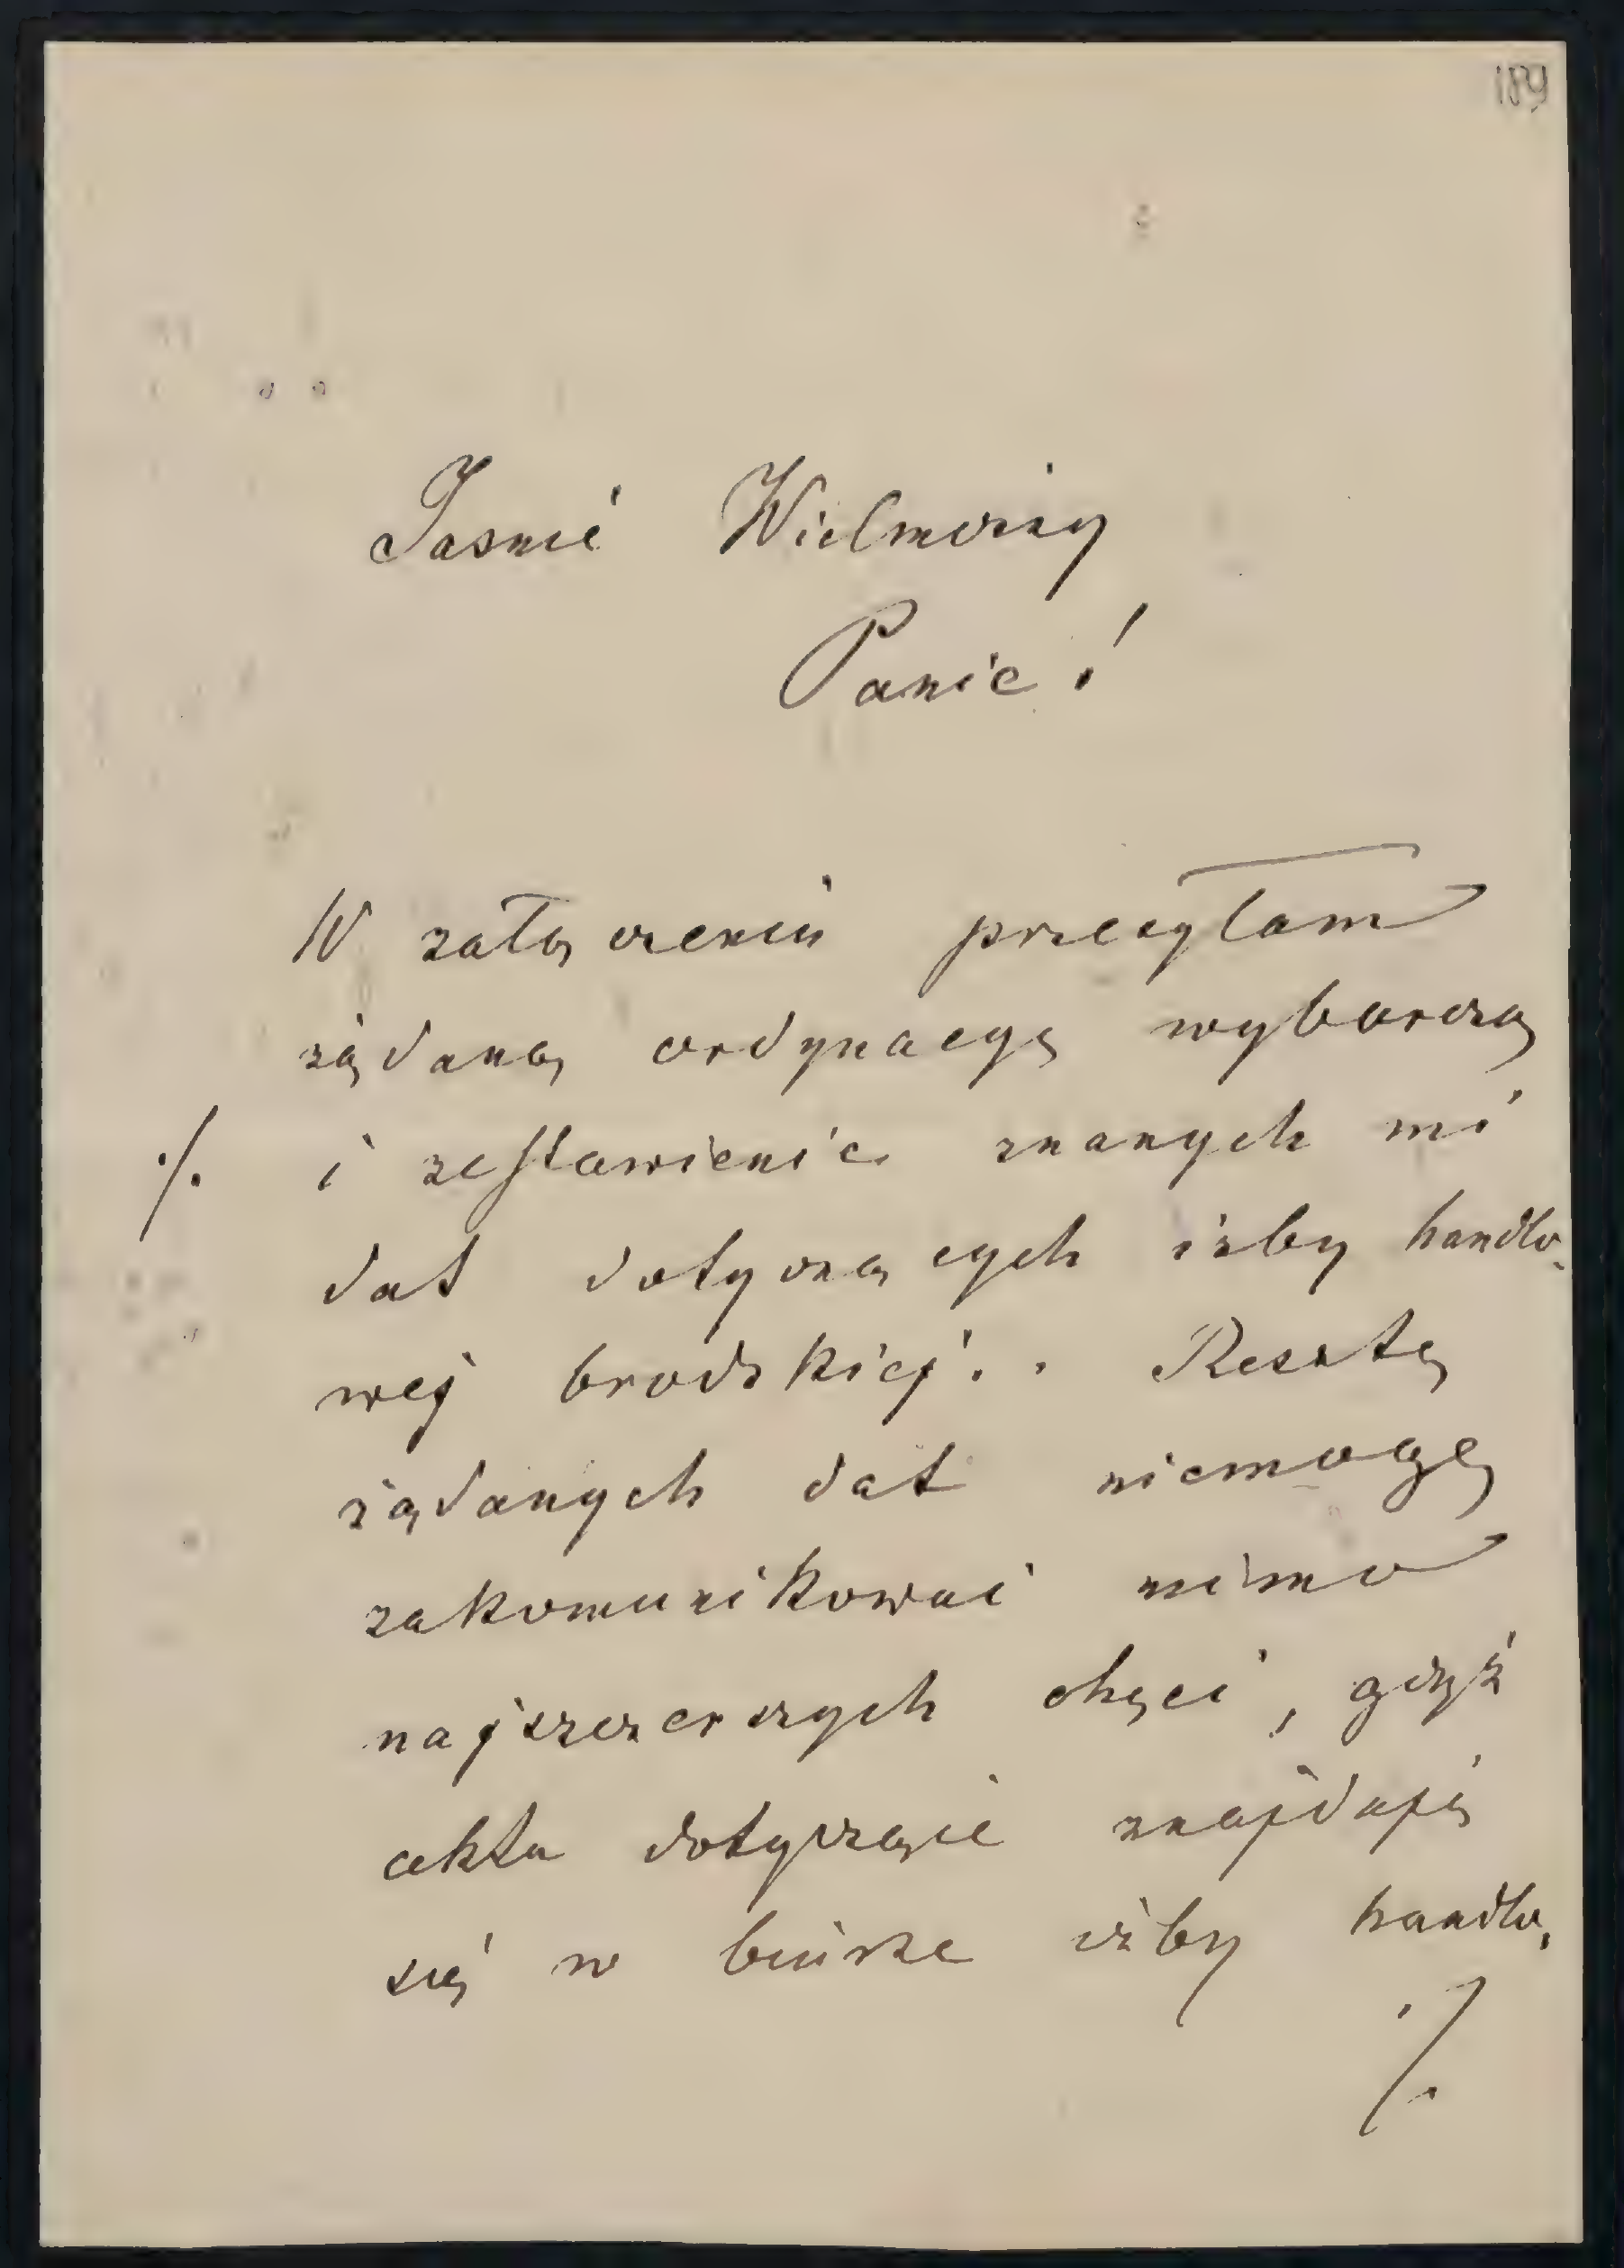 189
Jasnie Wielmożny
Panie!
W załączeniu przesyłam
żądaną ordynacyę wyborczą
./. i zestawienie znanych mi
dat dotyczących izby handlo-
wej brodzkiej. Resztę
żądanych dat niemogę
zakomunikować mimo
najszczerszych chęci, gdyż
akta dotyczące znajdują
się w biurze izby handlo,
./.